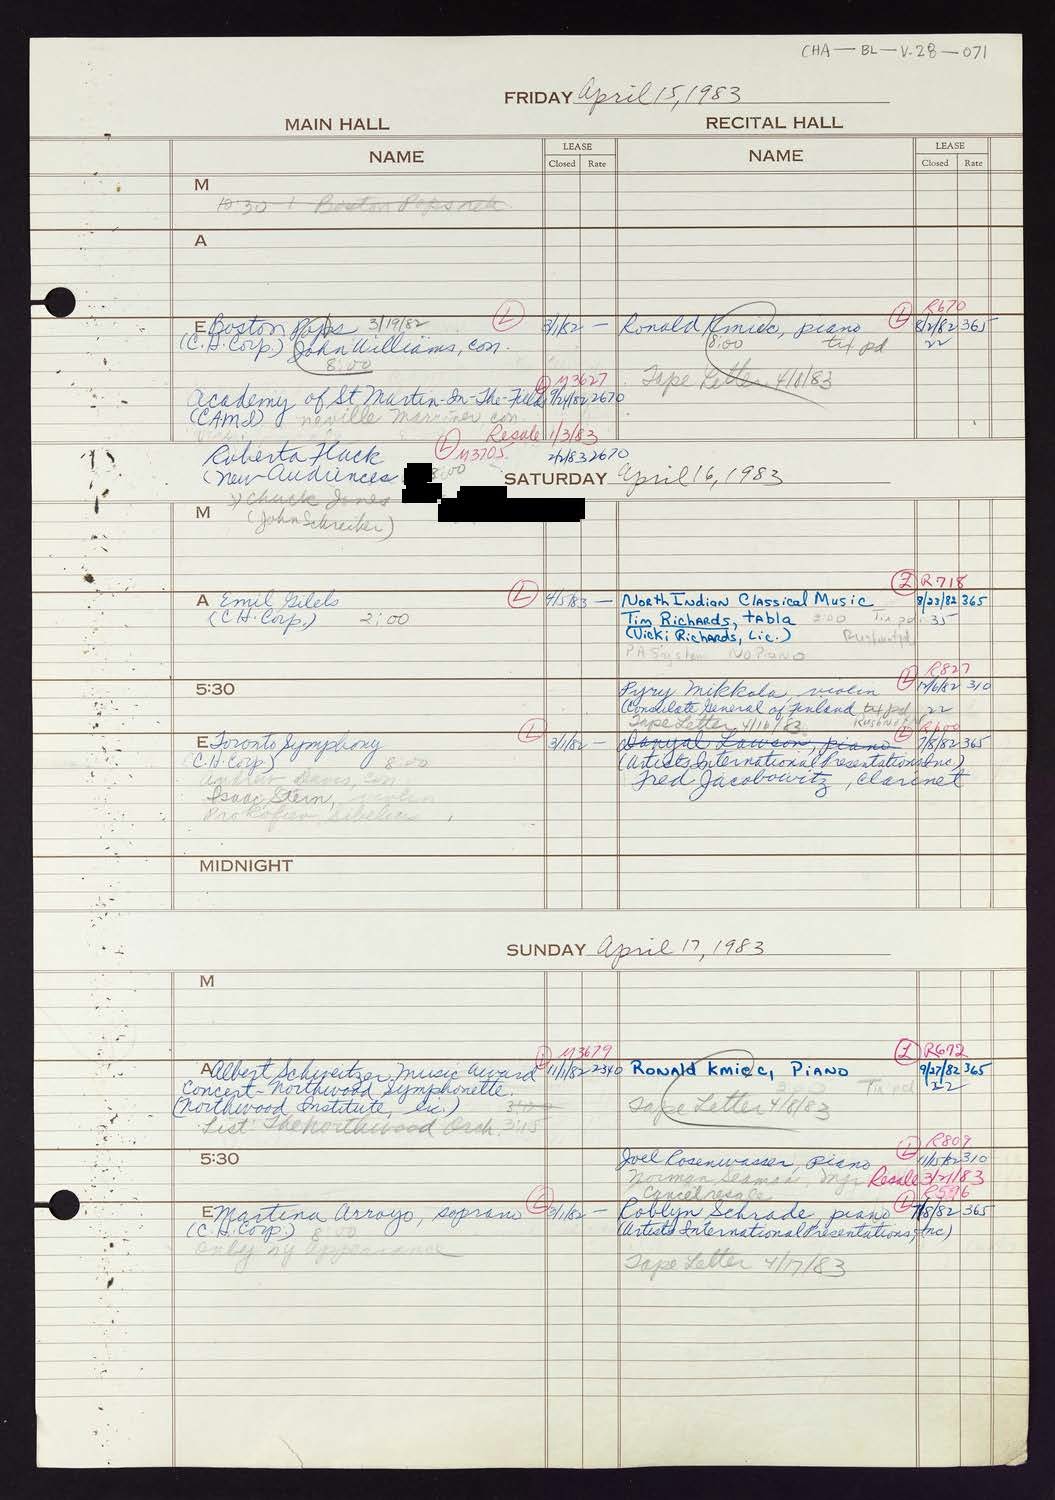 CHA — BL — V.28 — 071
FRIDAY April 15, 1983
MAIN HALL
RECITAL HALL
NAME
LEASE
Closed Rate
NAME
LEASE
Closed Rate
M
10:30 - 1 Boston Pops reh
A
E Boston Pops 3/19/82 L 3/1/82 —
(C.H. Corp) John Williams, con.
8:00
Academy of St Martin-In-The-Fields L M3627 9/24/82 2670
(CAMI) neville marriner, con
Roberta Flack L M3705 Resale 1/3/83
(New Audiences 8:00 2/2/83 2670
Chuck Jones
(John Schreiber)
Ronald Kmiec, piano L R670 8/2/82 365
8:00 txt pd 22
Tape Letter 4/8/83
SATURDAY April 16, 1983
M
A Emil Gilels L 4/5/83 —
(C.H. Corp.) 2:00
North Indian Classical Music L R718 8/23/82 365
Tim Richards, tabla 2:00 35
(Vicki Richards, Lic.)
PA System No Piano
5:30
Pyry Mikkola violin L R827 12/6/82 310
Consulate General of Finland txt pd 22
Tape Letter 4/16/83
E Toronto Symphony L 3/1/82 —
(C.H. Corp) 8:00
Andrew Davis, con
Isaac Stern, violin
Prokofiev, Sibelius
Danyal Lawson, piano L R600 7/8/82 365
(Artists International Presentations, Inc)
Fred Jacobowitz, clarinet
MIDNIGHT
SUNDAY April 17, 1983
M
A Albert Schweitzer Music Award L M3679 11/1/82 2340
Concert - Northwood Symphonette
(Northwood Institute, Lic.) 3:00
List: The Northwood Orch. 3:15
Ronald Kmiec, Piano L R692 9/27/82 365
3:00 Tix pd 22
Tape Letter 4/8/83
5:30
Joel Rosenwasser, piano L R809 11/15/82 310
Norman Seaman, Mgr. Resale 3/21/83
Cancel resale
E Martina Arroyo, soprano L 3/1/82 —
(C.H. Corp.) 8:00
Only NY Appearance
Roblyn Schrade, piano L R596 7/8/82 365
(Artists International Presentations, Inc)
Tape Letter 4/17/83